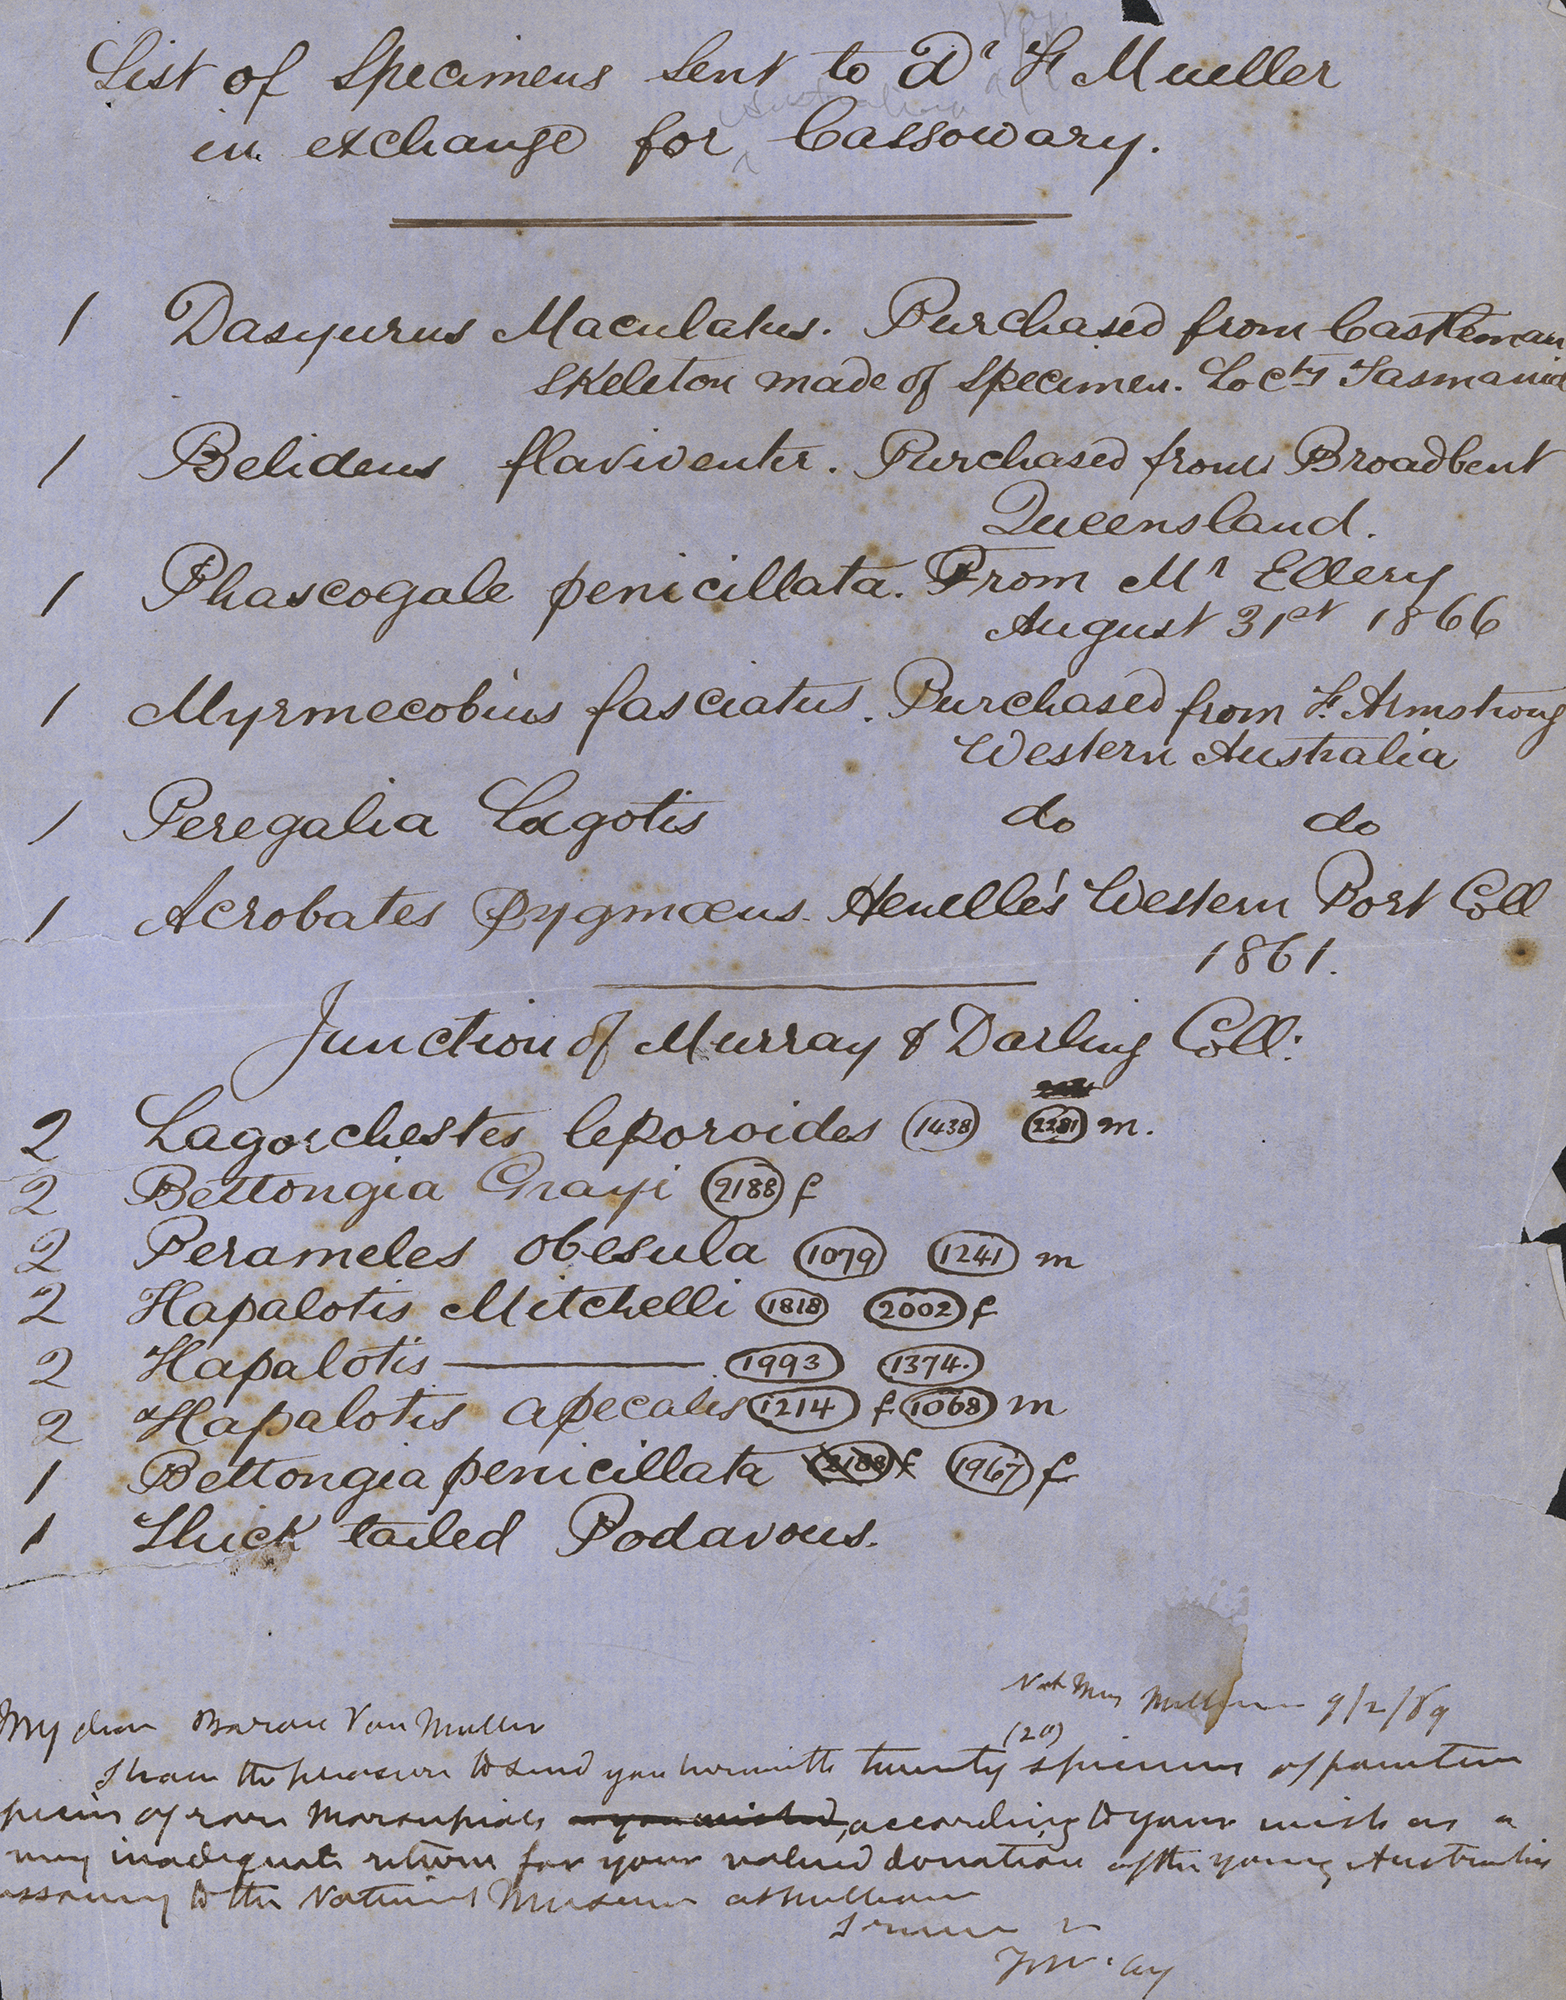 List of Specimens sent to Dr F Mueller
in exchange for Australian Cassowary.
1 Dasyurus Maculatus. Purchased from Castleman
Skeleton made of Specimen. Locty Tasmania
1 Belideus flaviventer. Purchased from Broadbent
Queensland.
1 Phascogale penicillata. From Mr Ellery
August 31st 1866
1 Myrmecobius fasciatus. Purchased from F. Armstrong
Western Australia
1 Peregalia Lagotis do do
1 Acrobates pygmœus. Western Port Coll
1861.
Junction of Murray & Darling Coll:
2 Lagorchestes leporoides 1438 2281 m.
2 Bettongia Grayi 2188 f
2 Perameles obesula 1079 1241 m
2 Hapalotis Mitchelli 1818 2002 f
2 Hapalotis ——— 1993 1374.
2 Hapalotis apecalis 1214 f 1068 m
1 Bettongia penicillata 2188 f 1967 f
1 Thick tailed Podavous.
Nat Mus Melbourne 9/2/69
My dear Baron Von Muller
(20)
I have the pleasure to send you herewith twenty specimens of
of rare Marsupials as you wished, according to your wish as a
very inadequate return for your valued donation of the young Australian
Cassowary to the National Museum at Melbourne